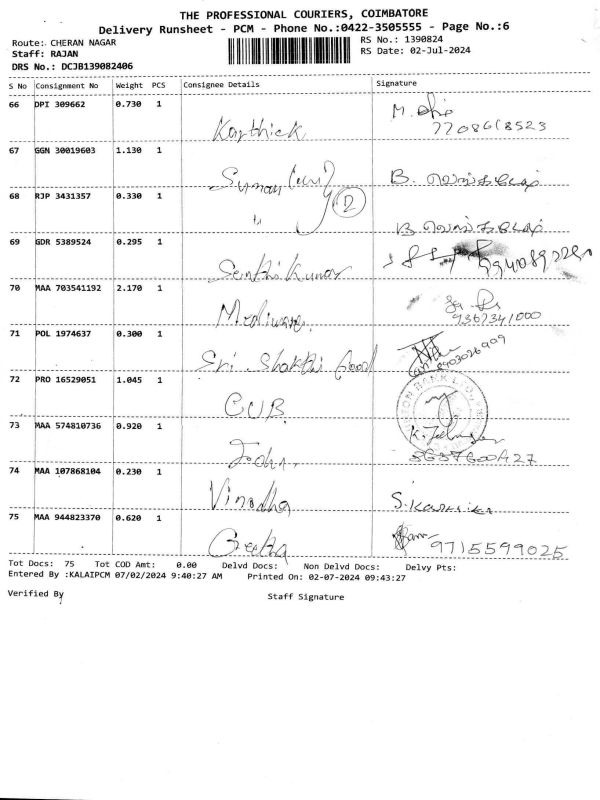 THE PROFESSIONAL COURIERS, COIMBATORE
Delivery Runsheet - PCM - Phone No.:0422-3505555 - Page No.:6
Route: CHERAN NAGAR RS No.: 1390824
Staff: RAJAN RS Date: 02-Jul-2024
DRS No.: DCJB139082406
S No Consignment No Weight PCS Consignee Details Signature
66 DPI 309662 0.730 1 Karthick M.
7708618523
67 GGN 30019603 1.130 1 B.
68 RJP 3431357 0.330 1 " 2 B.
69 GDR 5389524 0.295 1 Senthil Kumar
70 MAA 703541192 2.170 1 Mediware
9362341000
71 POL 1974637 0.300 1 Sri Shakthi food 8903026909
72 PRO 16529051 1.045 1 CUB
73 MAA 574810736 0.920 1 John
74 MAA 107868104 0.230 1 Vinodha
75 MAA 944823370 0.620 1 Geetha 9715599025
Tot Docs: 75 Tot COD Amt: 0.00 Delvd Docs: Non Delvd Docs: Delvy Pts:
Entered By :KALAIPCM 07/02/2024 9:40:27 AM Printed On: 02-07-2024 09:43:27
Verified By Staff Signature